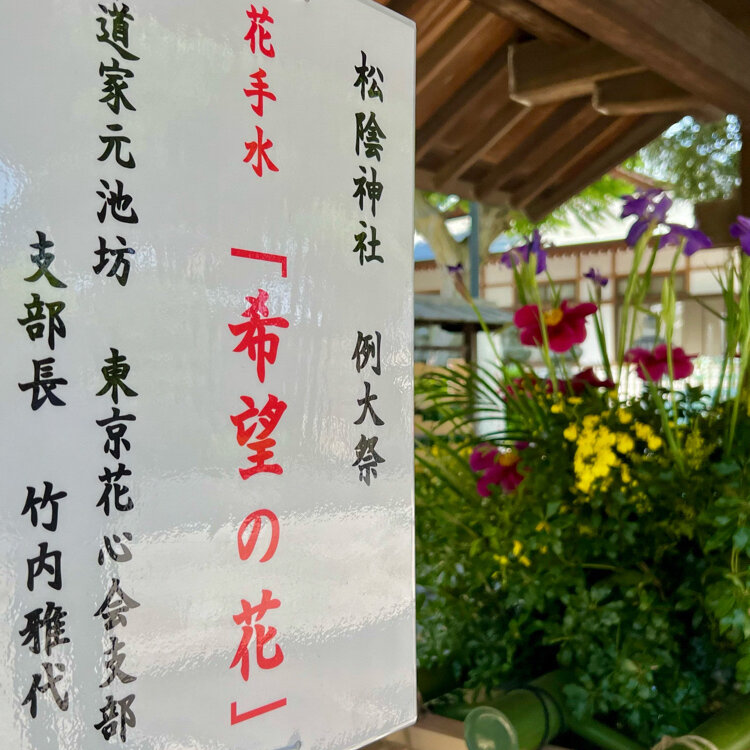 松陰神社 例大祭
花手水 「希望の花」
道家元池坊 東京花心会支部
支部長 竹内雅代